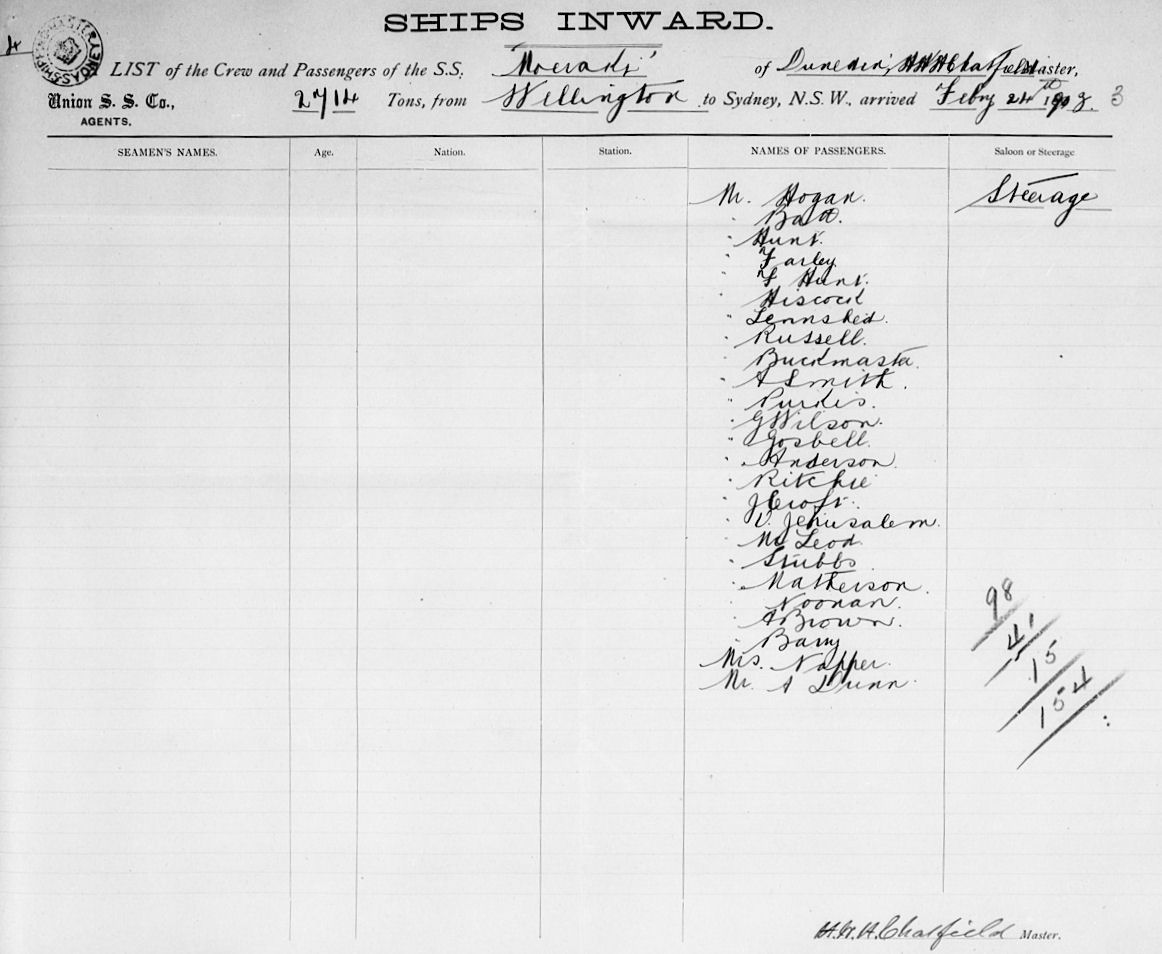 SHIPS INWARD.
LIST of the Crew and Passengers of the S.S. 'Moeraki' of Dunedin, H.W.H. Chatfield Master,
Union S. S. Co., 2714 Tons, from Wellington to Sydney, N.S.W., arrived Feby 24th 1903. 3
AGENTS.
SEAMEN'S NAMES. Age. Nation. Station. NAMES OF PASSENGERS. Saloon or Steerage
Mr. Hogan. Steerage
" Hunt.
" Farley
" Hunt.
" Hiscock
" Russell.
" Buckmaster.
" A Smith.
" Purdis.
" G Wilson.
" Gosbell.
" Anderson
" Ritchie
" J Croft.
" V. Jerusalem.
" McLeod
" Stubbs.
" Matherson.
" Noonan.
" A Brown.
" Barry
Mrs. Napper.
Mr. A Dunn.
98
41
15
154
H.W.H. Chatfield Master.